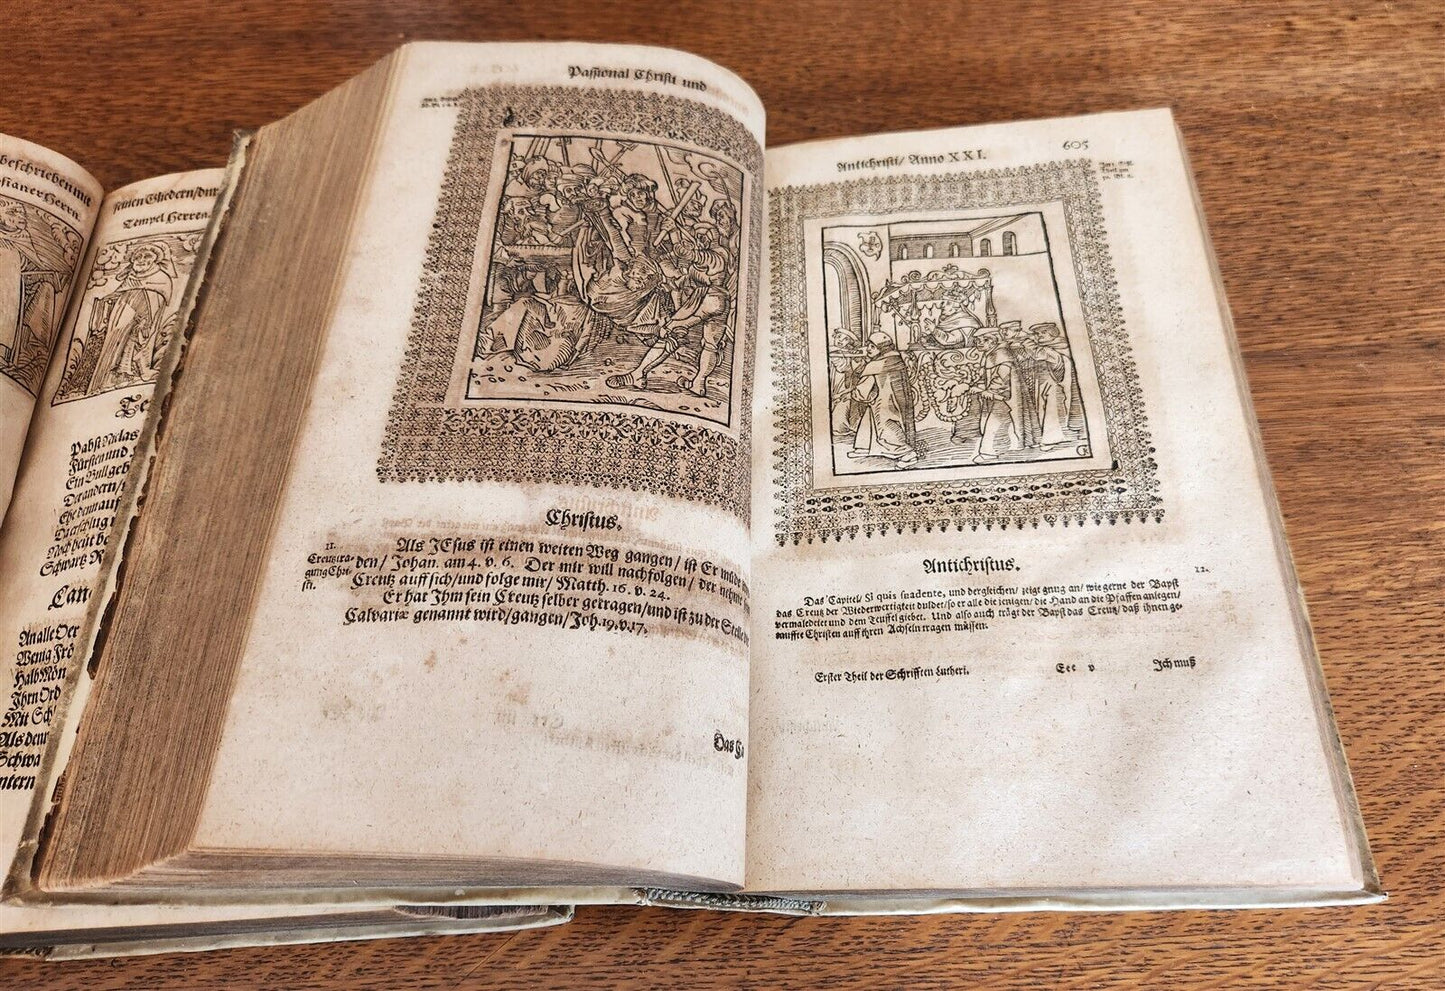 beschrieben mit
stianer Herrn.
seinen Gliedern/
Tempel Herren
Pabst Niclas
Fürsten und
Ein Bull geh
Der andern/
Ehe denn auf
Noch heut be
Schwartz R
An alle Oer
Wenig Frö
Halb Mön
Ihrn Ord
Mit Sch
Als denn
Schwa
ntern
Passional Christi und
Christus.
11.
Creutztra-
gung Chri-
sti.
Als JEsus ist einen weiten Weg gangen/ ist Er müde
den/ Johan. am 4. v. 6. Der mir will nachfolgen/ der nehme
Creutz auff sich/und folge mir/ Matth. 16. v. 24.
Er hat Ihm sein Creutz selber getragen/und ist zu der Stelle
Calvariæ genannt wird/gangen/ Joh. 19. v. 17.
Das Ca
Antichristi/ Anno XXI.
605
Antichristus.
12.
Das Capitel/ Si quis suadente, und dergleichen/ zeigt gnug an/ wie gerne der Bapst
das Creutz der Wiederwertigkeit duldet/ so er alle die jenigen/ die Hand an die Pfaffen anlegen/
vermaledeiet und dem Teuffel giebet. Und also auch trägt der Bapst das Creutz/ daß ihnen ge-
tauffte Christen auff ihren Achseln tragen müssen.
Erster Theil der Schrifften Lutheri.
Eee v
Ich muß